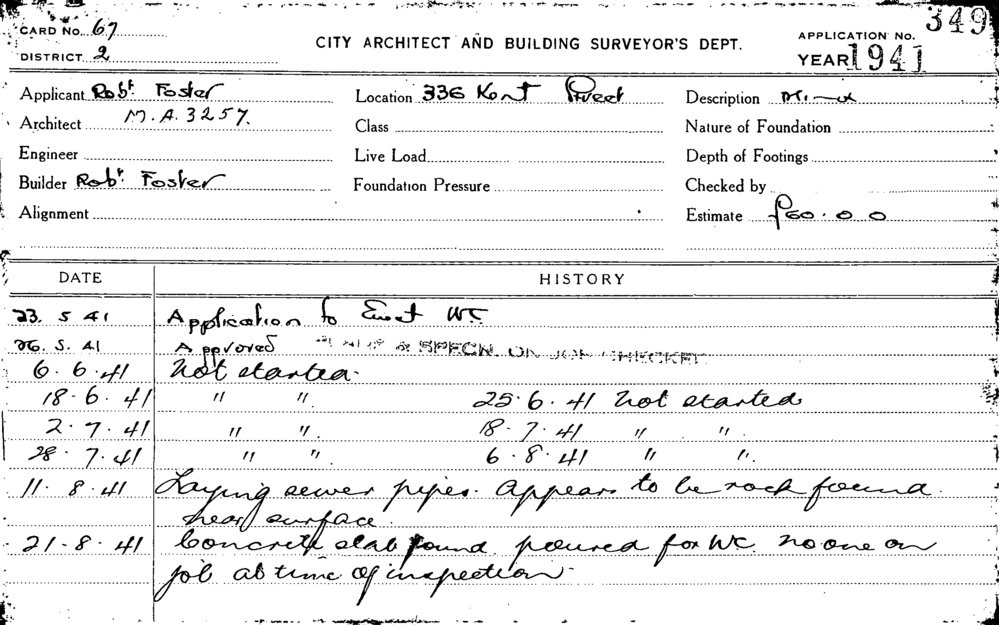 349
CARD No. 67
CITY ARCHITECT AND BUILDING SURVEYOR'S DEPT.
APPLICATION No.
DISTRICT 2
YEAR 1941
Applicant Robt Foster
Location 336 Kent Street
Description
Architect M.A. 3257.
Class
Nature of Foundation
Engineer
Live Load
Depth of Footings
Builder Robt Foster
Foundation Pressure
Checked by
Alignment
Estimate £60.0.0
DATE HISTORY
23. 5 41 Application to Erect W.C.
26. 5. 41 Approved PLANS & SPECN. ON JOB CHECKED
6. 6. 41 Not started.
18. 6. 41 " ". 25. 6. 41 Not started
2. 7. 41 " ". 18. 7. 41 " ".
28. 7. 41 " ". 6. 8. 41 " ".
11. 8. 41 Laying sewer pipes. Appears to be rock found
near surface.
21. 8. 41 Concrete slab found poured for WC. no one on
job at time of inspection.